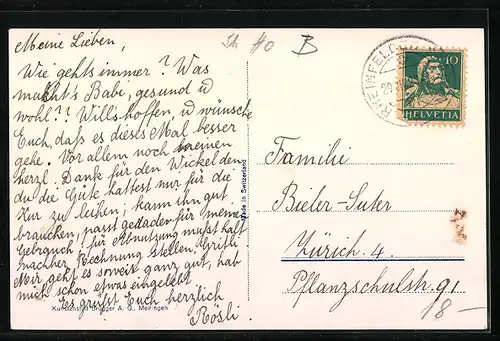 Meine Lieben,
Wie gehts immer? Was
macht's Babi, gesund u
wohl?? Will's hoffen, u wünsche
Euch, daß es dieses Mal besser
gehe. Vor allem noch meinen
herzl. Dank für den Wickel den
du die Güte hattest mir für die
Kur zu leihen; kann ihn gut
brauchen, passt gerade für meine
Gebrauch; für Abnutzung mußt halt
nachher Rechnung stellen, Gritli
Mir geht es soweit ganz gut, hab
mich schon etwas eingelebt
Es grüßt Euch herzlich
Rösli.
Kunstanstalt Brügger A. G., Meiringen
Made in Switzerland
H0
B
RHEINFELDEN
10
HELVETIA
Familie
Bieler-Suter
Zürich 4.
Pflanzschulstr. 91
18-